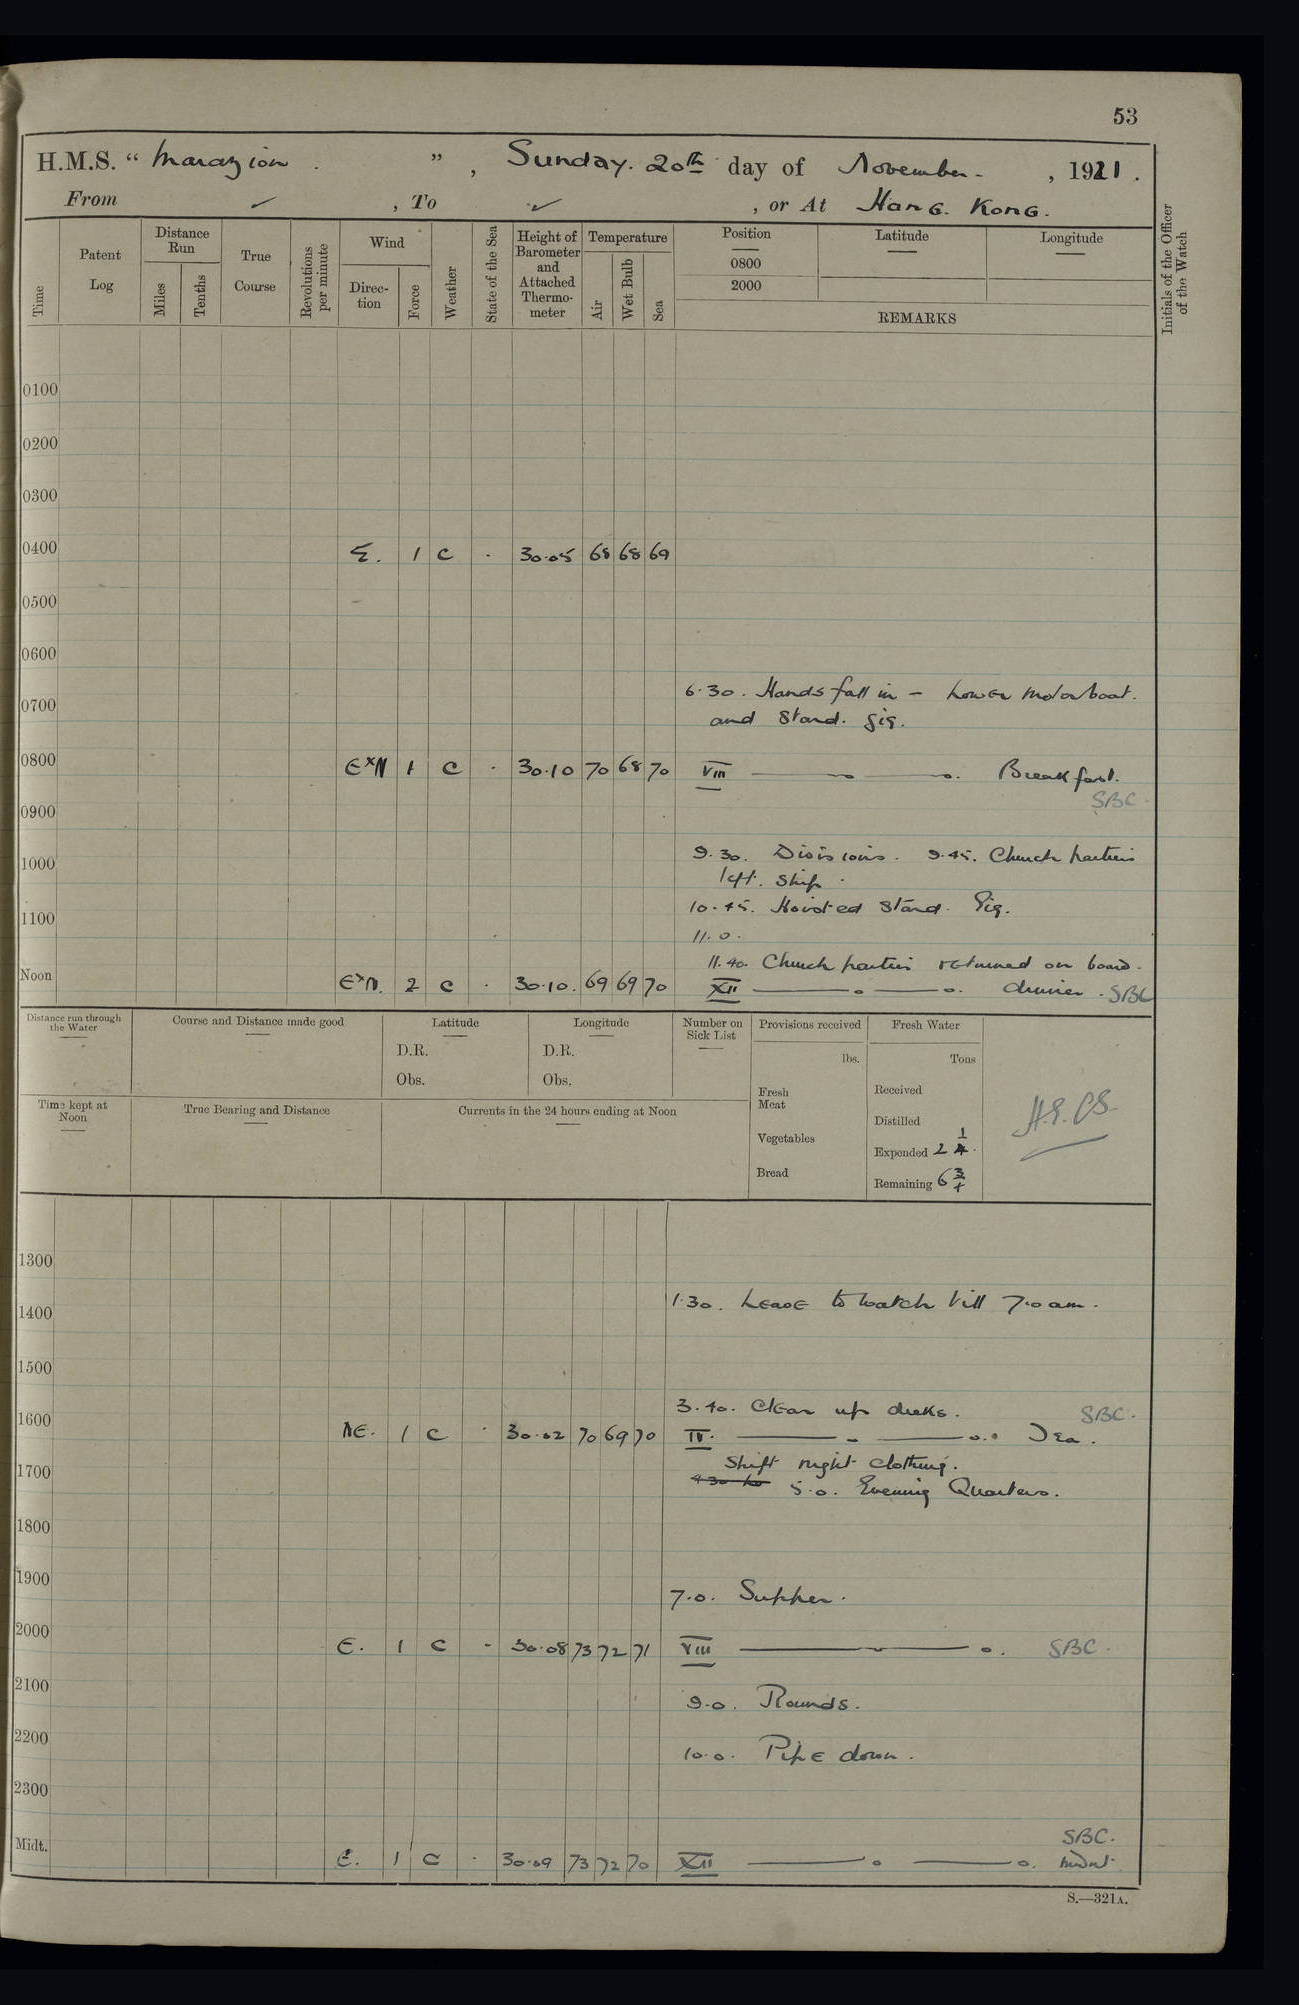 53
H.M.S. “ Marazion . ” , Sunday. 20th day of November - , 1921 .
From ✓ , To ✓ , or At Hong Kong.
Time
Patent Log
Distance Run
Miles
Tenths
True Course
Revolutions per minute
Wind
Direction
Force
Weather
State of the Sea
Height of Barometer and Attached Thermometer
Temperature
Air
Wet Bulb
Sea
Position
0800
2000
Latitude
Longitude
REMARKS
Initials of the Officer of the Watch
0100
0200
0300
0400 E. 1 C · 30.05 68 68 69
0500
0600
6.30. Hands fall in - Lower motor boat.
0700 and Stand. gig.
0800 ExN 1 C · 30.10 70 68 70 VIII —— o —— o. Breakfast.
SBC.
0900
9.30. Divisions. 9.45. Church parties
1000 left. Ship.
10.45. Hoisted Stand. Gig.
1100
11.0.
11.40. Church parties returned on board.
Noon ExN. 2 C · 30.10. 69 69 70 XII —— o —— o. dinner. SBC
Distance run through the Water
Course and Distance made good
Latitude
D.R.
Obs.
Longitude
D.R.
Obs.
Number on Sick List
Provisions received
lbs.
Fresh Meat
Vegetables
Bread
Fresh Water
Tons
Received
Distilled
Expended 2 1/4.
Remaining 6 3/4
Time kept at Noon
True Bearing and Distance
Currents in the 24 hours ending at Noon
1300
1400 1.30. Leave to Watch till 7.0 am.
1500
3.40. Clear up decks. SBC.
1600 NE. 1 C · 30.02 70 69 70 IV. —— o —— o. Tea.
Shift night clothing.
1700 4.30 to 5.0. Evening Quarters.
1800
1900
7.0. Supper.
2000 E. 1 C - 30.08 73 72 71 VIII —— o. SBC.
2100
9.0. Rounds.
2200
10.0. Pipe down.
2300
SBC.
Midt. E. 1 C · 30.09 73 72 70 XII —— o —— o. midnt.
S.—321A.